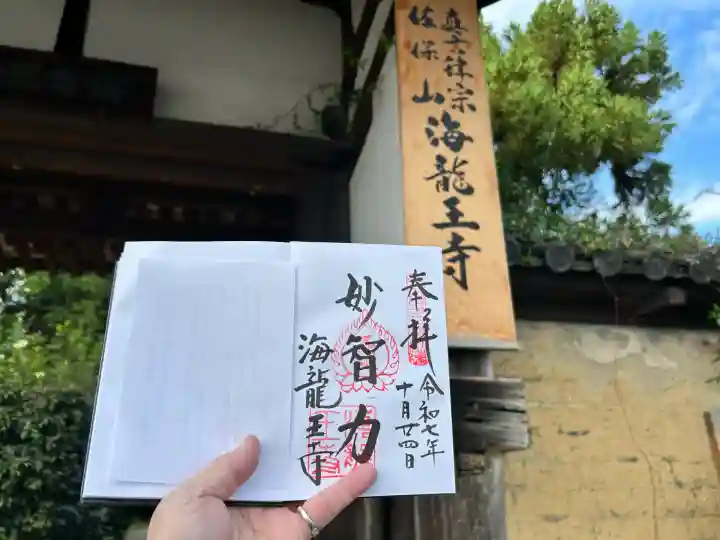 真言律宗
佐保山海龍王寺
奉拝
令和七年
十月廿四日
妙智力
海龍王寺